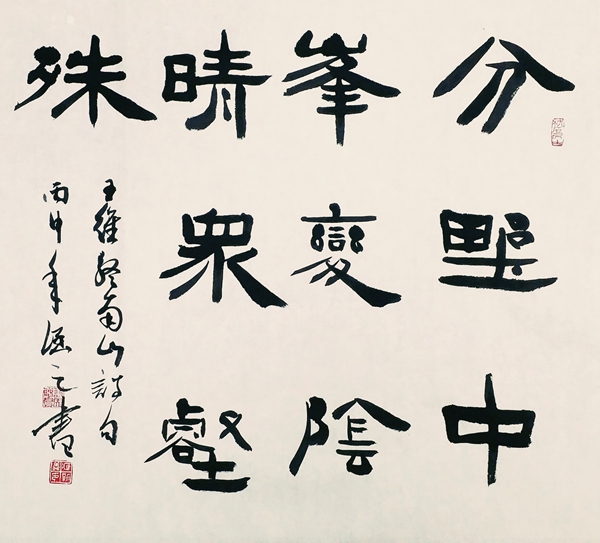 分野中
峯變陰
晴衆壑
殊
王維終南山詩句
丙申年之書